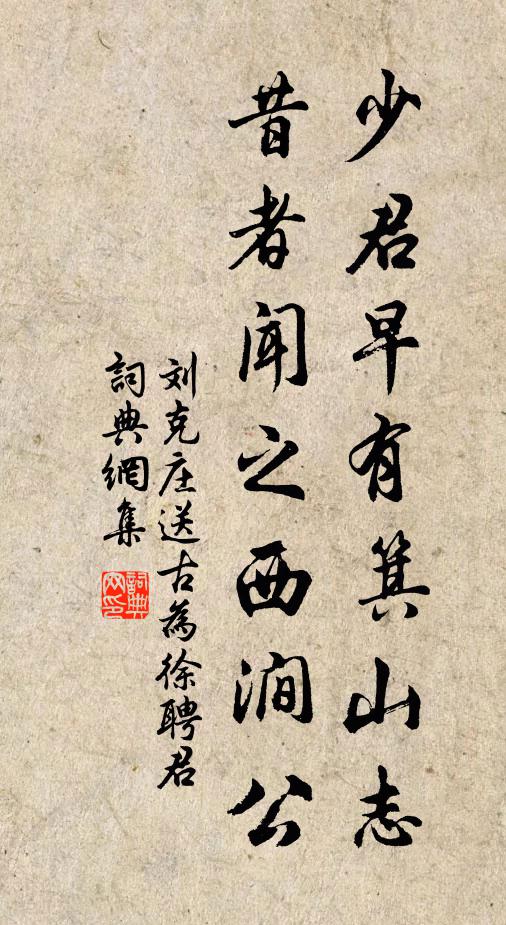 少君早有箕山志
昔者闻之西涧公
刘克庄送古為徐聘君
詞典網集
詞典
网印